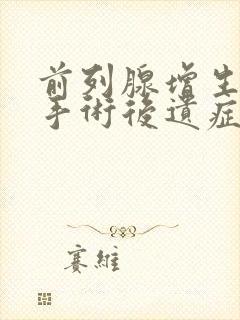 前列腺增生
手術後遺症
賽維